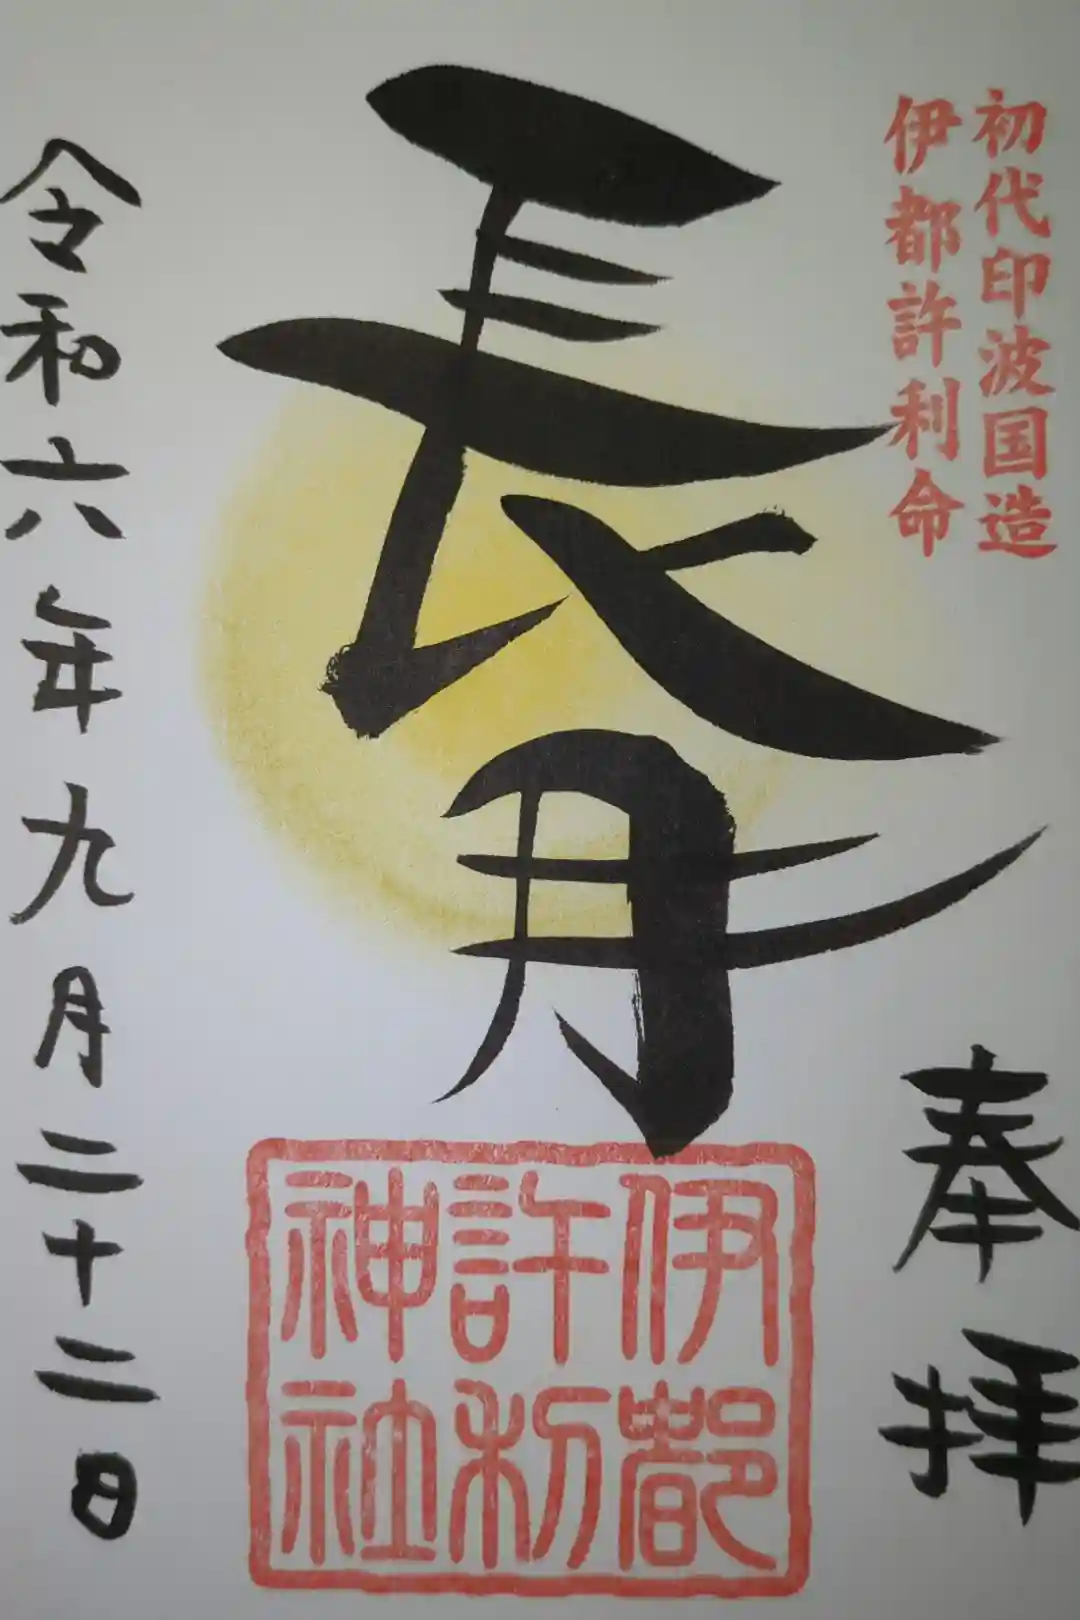 初代印波国造
伊都許利命
奉拝
長月
伊都
許利
神社
令和六年九月二十二日